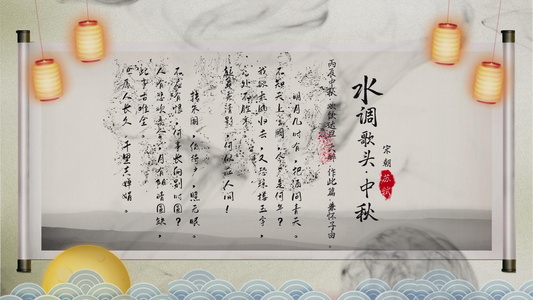 水调歌头·中秋
宋朝
苏轼
丙辰中秋,欢饮达旦,大醉,作此篇,兼怀子由。
明月几时有,把酒问青天。
不知天上宫阙,今夕是何年?
我欲乘风归去,又恐琼楼玉宇,
高处不胜寒。
起舞弄清影,何似在人间!
转朱阁,低绮户,照无眠。
不应有恨,何事长向别时圆?
人有悲欢离合,月有阴晴圆缺,
此事古难全。
但愿人长久,千里共婵娟。